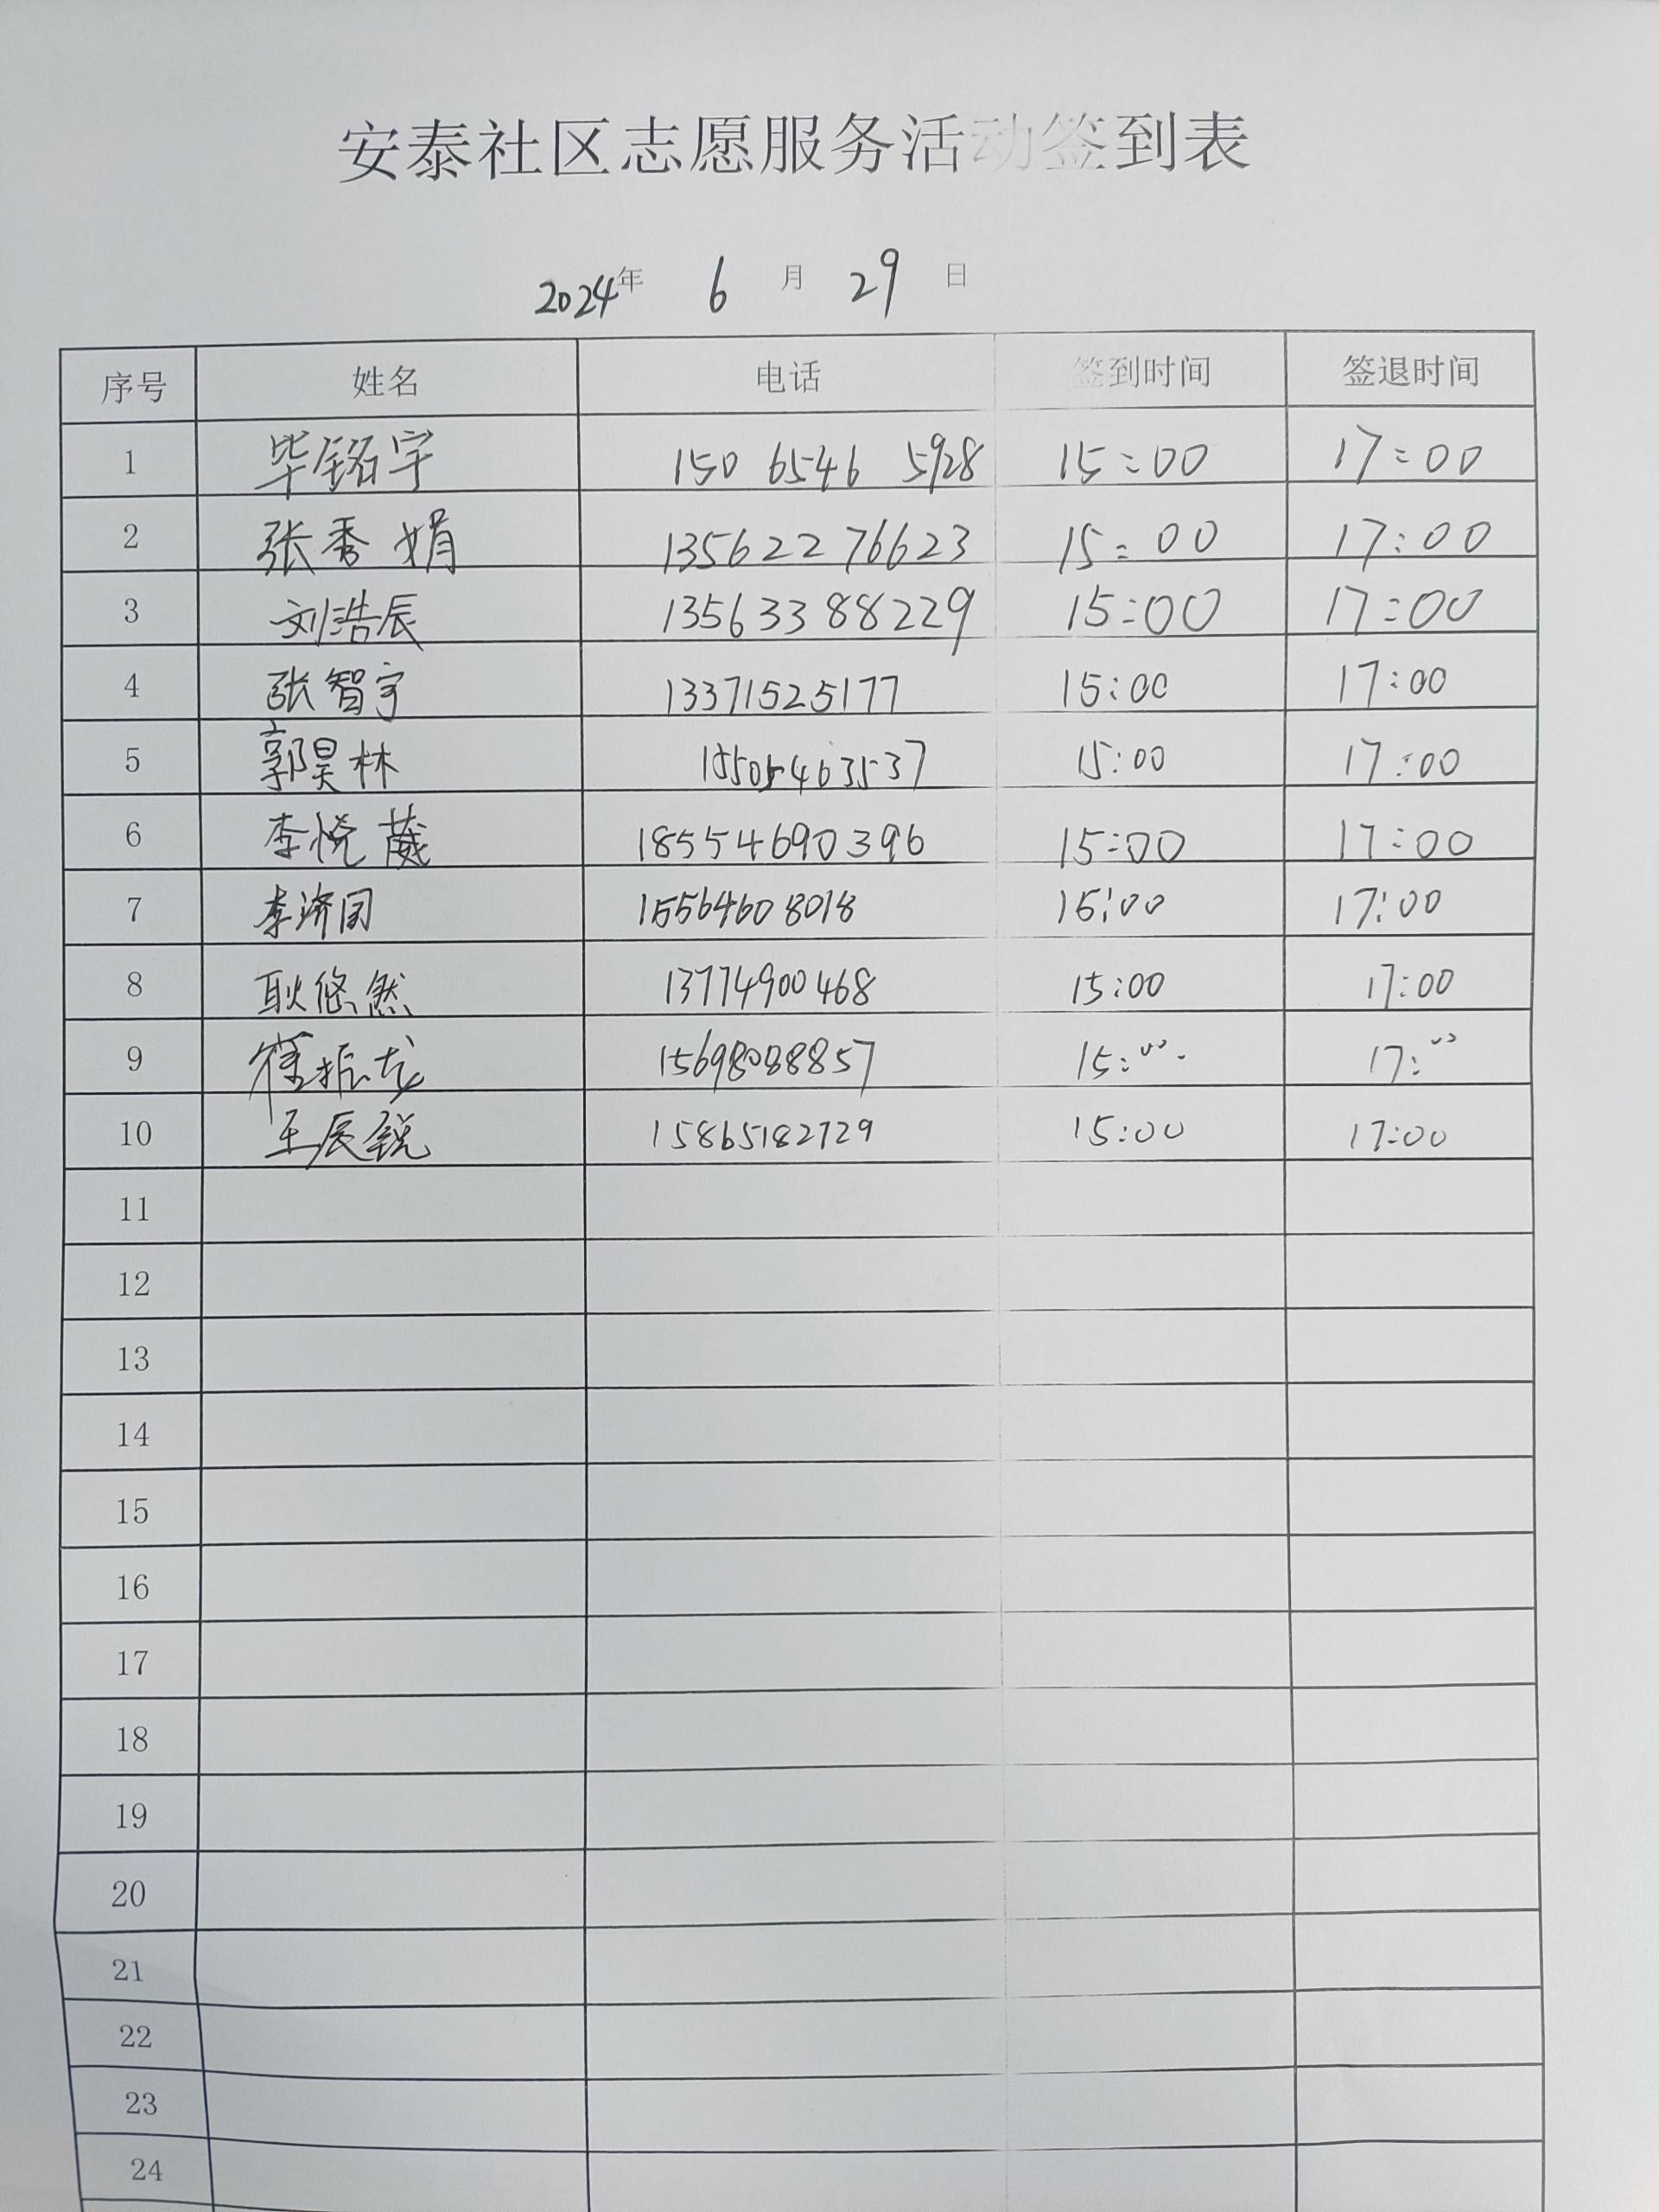 安泰社区志愿服务活动签到表
2024年 6 月 29 日
序号 姓名 电话 签到时间 签退时间
1 毕铭宇 150 6546 5928 15:00 17:00
2 张秀娟 13562276623 15:00 17:00
3 刘浩辰 13563388229 15:00 17:00
4 张智宇 13371525177 15:00 17:00
5 郭昊林 15:00 17:00
6 李悦葳 18554690396 15:00 17:00
7 李济同 15564608018 15:00 17:00
8 耿悠然 13774900468 15:00 17:00
9 15698088857 15:00 17:00
10 王辰锐 15865182729 15:00 17:00
11
12
13
14
15
16
17
18
19
20
21
22
23
24